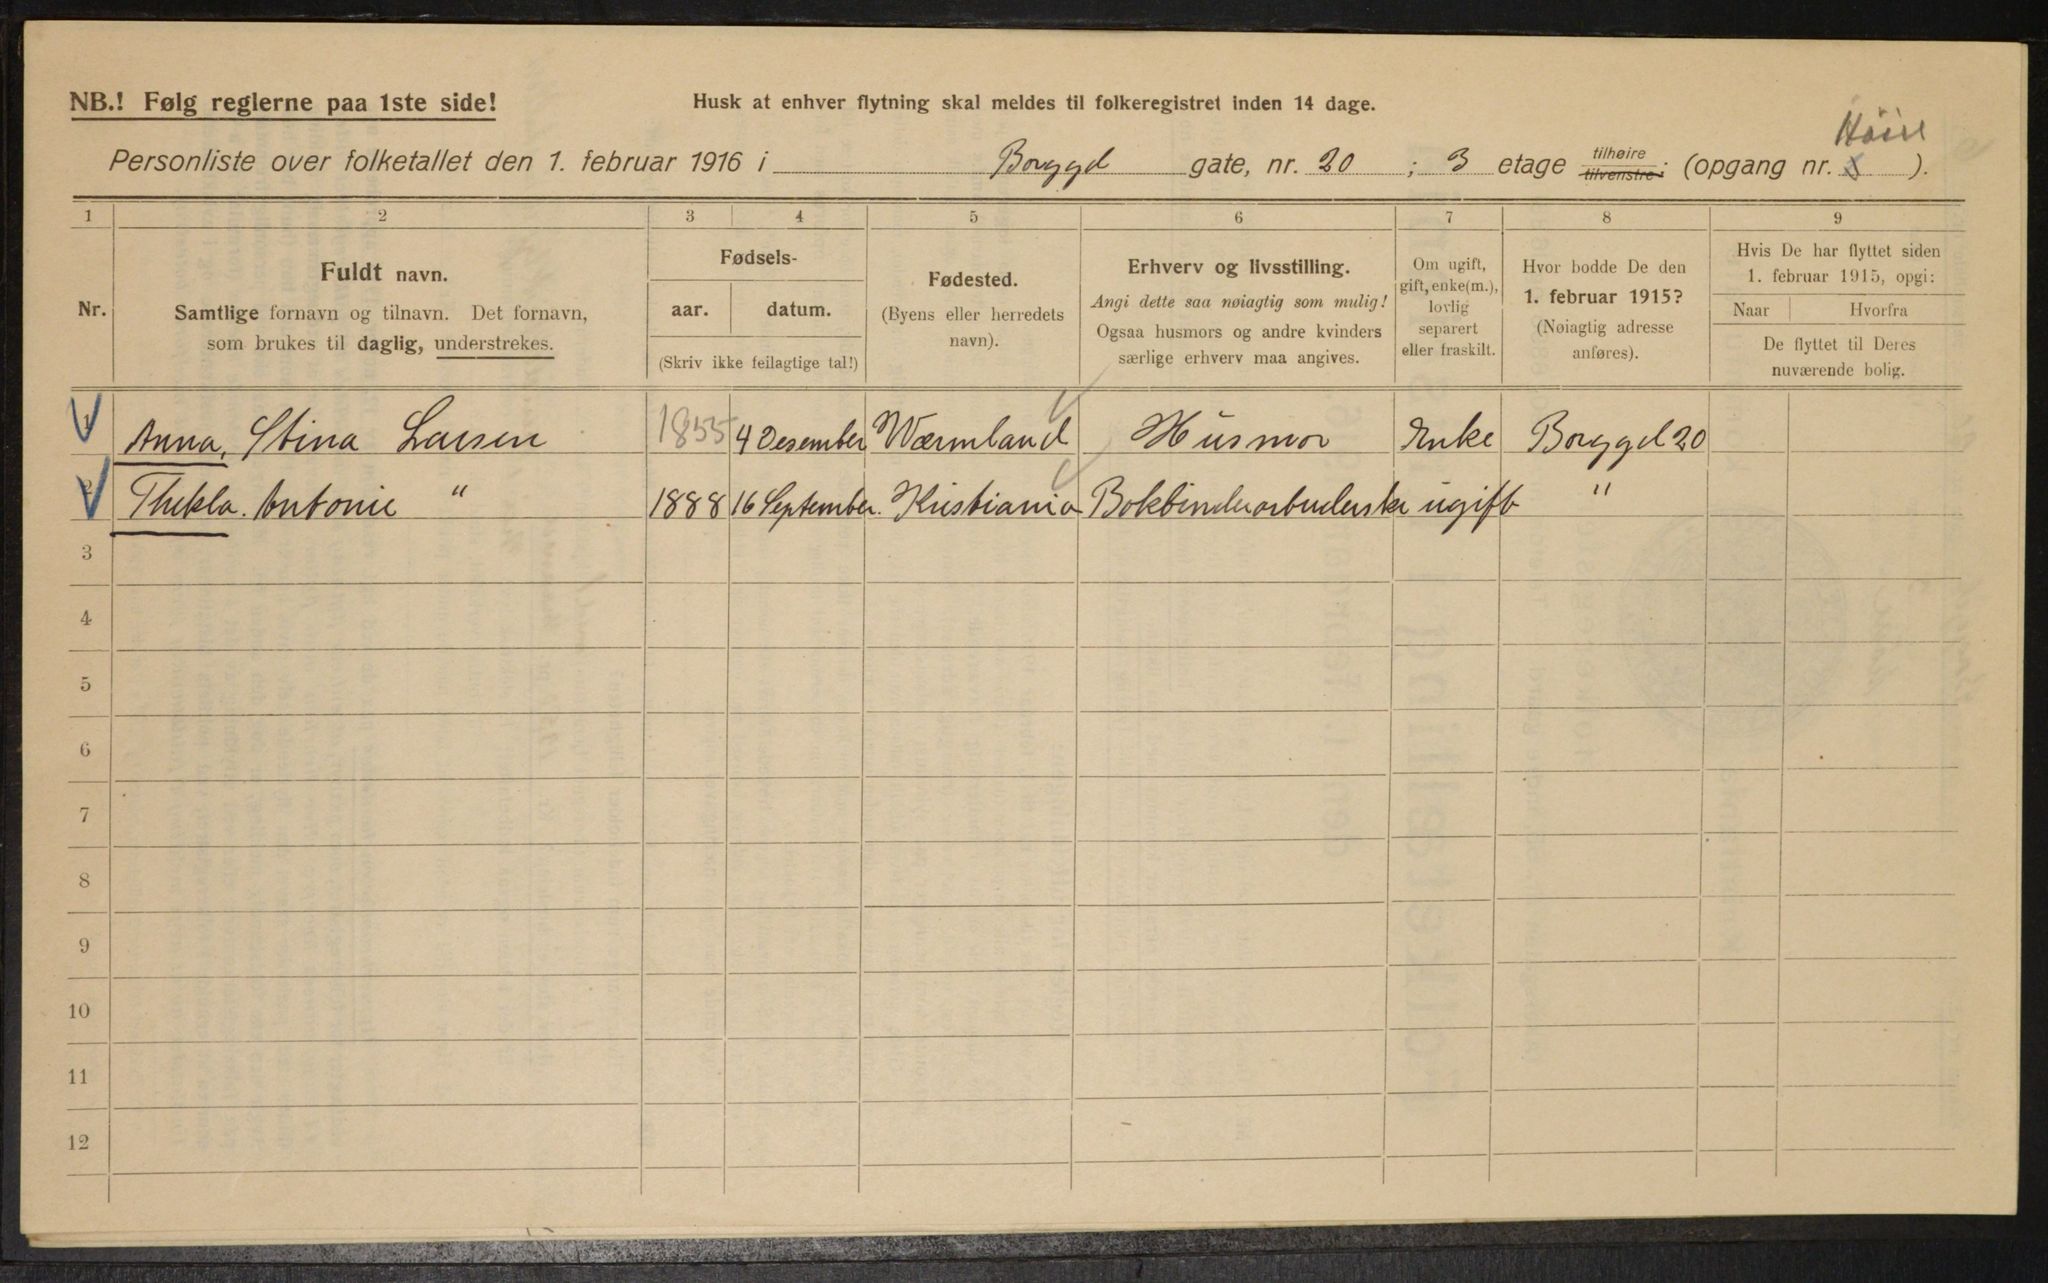 NB.! Følg reglerne paa 1ste side!
Husk at enhver flytning skal meldes til folkeregistret inden 14 dage.
Høire
Personliste over folketallet den 1. februar 1916 i Borggd gate, nr. 20 ; 3 etage tilhøire tilvenstre ; (opgang nr. ).
1 2 3 4 5 6 7 8 9
Nr.
Fuldt navn.
Samtlige fornavn og tilnavn. Det fornavn,
som brukes til daglig, understrekes.
Fødsels-
aar. datum.
(Skriv ikke feilagtige tal!)
Fødested.
(Byens eller herredets
navn).
Erhverv og livsstilling.
Angi dette saa nøiagtig som mulig!
Ogsaa husmors og andre kvinders
særlige erhverv maa angives.
Om ugift,
gift, enke(m.),
lovlig
separert
eller fraskilt.
Hvor bodde De den
1. februar 1915?
(Nøiagtig adresse
anføres).
Hvis De har flyttet siden
1. februar 1915, opgi:
Naar Hvorfra
De flyttet til Deres
nuværende bolig.
1 Anna, Stina Larsen 1855 4 Desember Wærmland Husmor Enke Borggd 20
2 Thekla. Antonie " 1888 16 September. Kristiania Bokbinderarbuderske ugift "
3
4
5
6
7
8
9
10
11
12